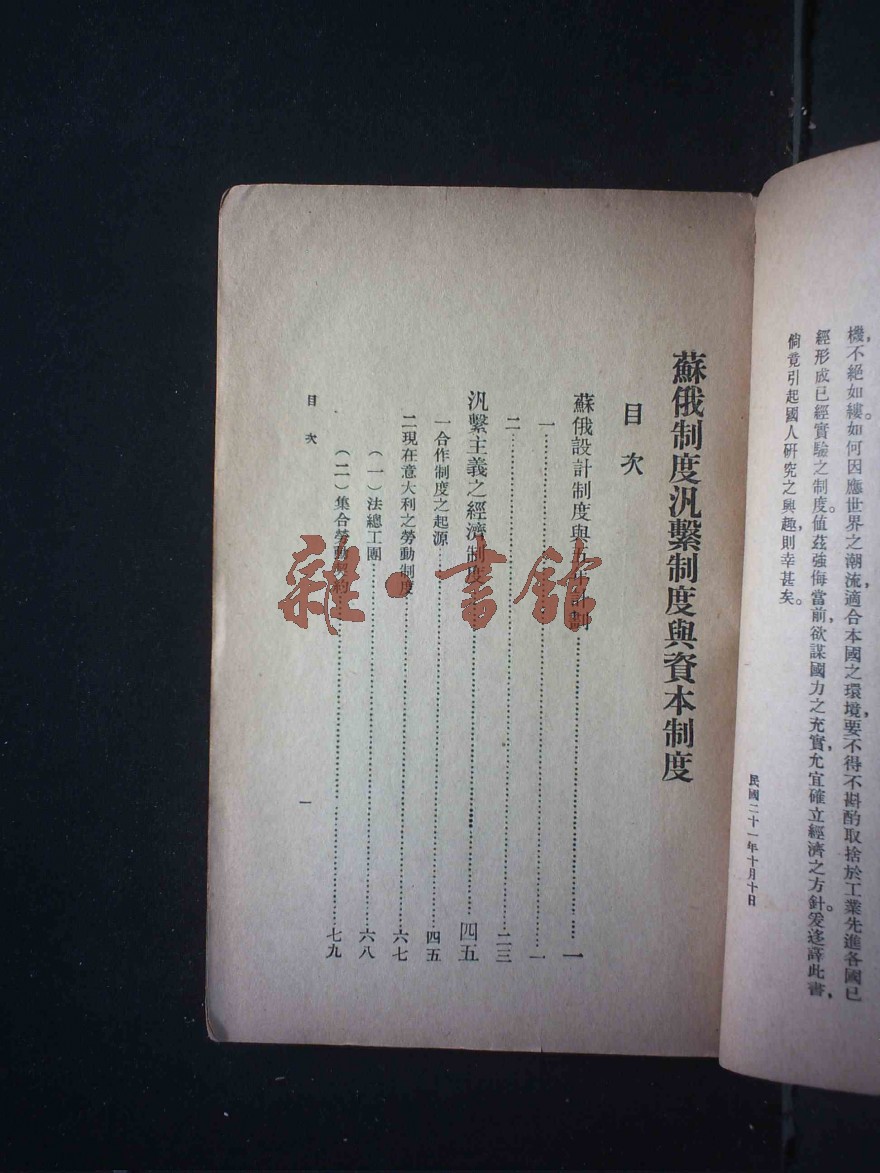 機不絕如縷如何因應世界之潮流適合本國之環境要不得不斟酌取捨於工業先進各國已
經形成已經實驗之制度。值茲強侮當前欲謀國力之充實允宜確立經濟之方針爰迻譯此書，
倘竟引起國人研究之興趣，則幸甚矣。
民國二十一年十月十日
蘇俄制度汎繫制度與資本制度
目次
蘇俄設計制度與五年計劃……一
一……一
二……二三
汎繫主義之經濟制度……四五
一合作制度之起源……四五
二現在意大利之勞動制度……六七
（一）法總工團……六八
（二）集合勞動契約……七九
目次
一
雜·書館